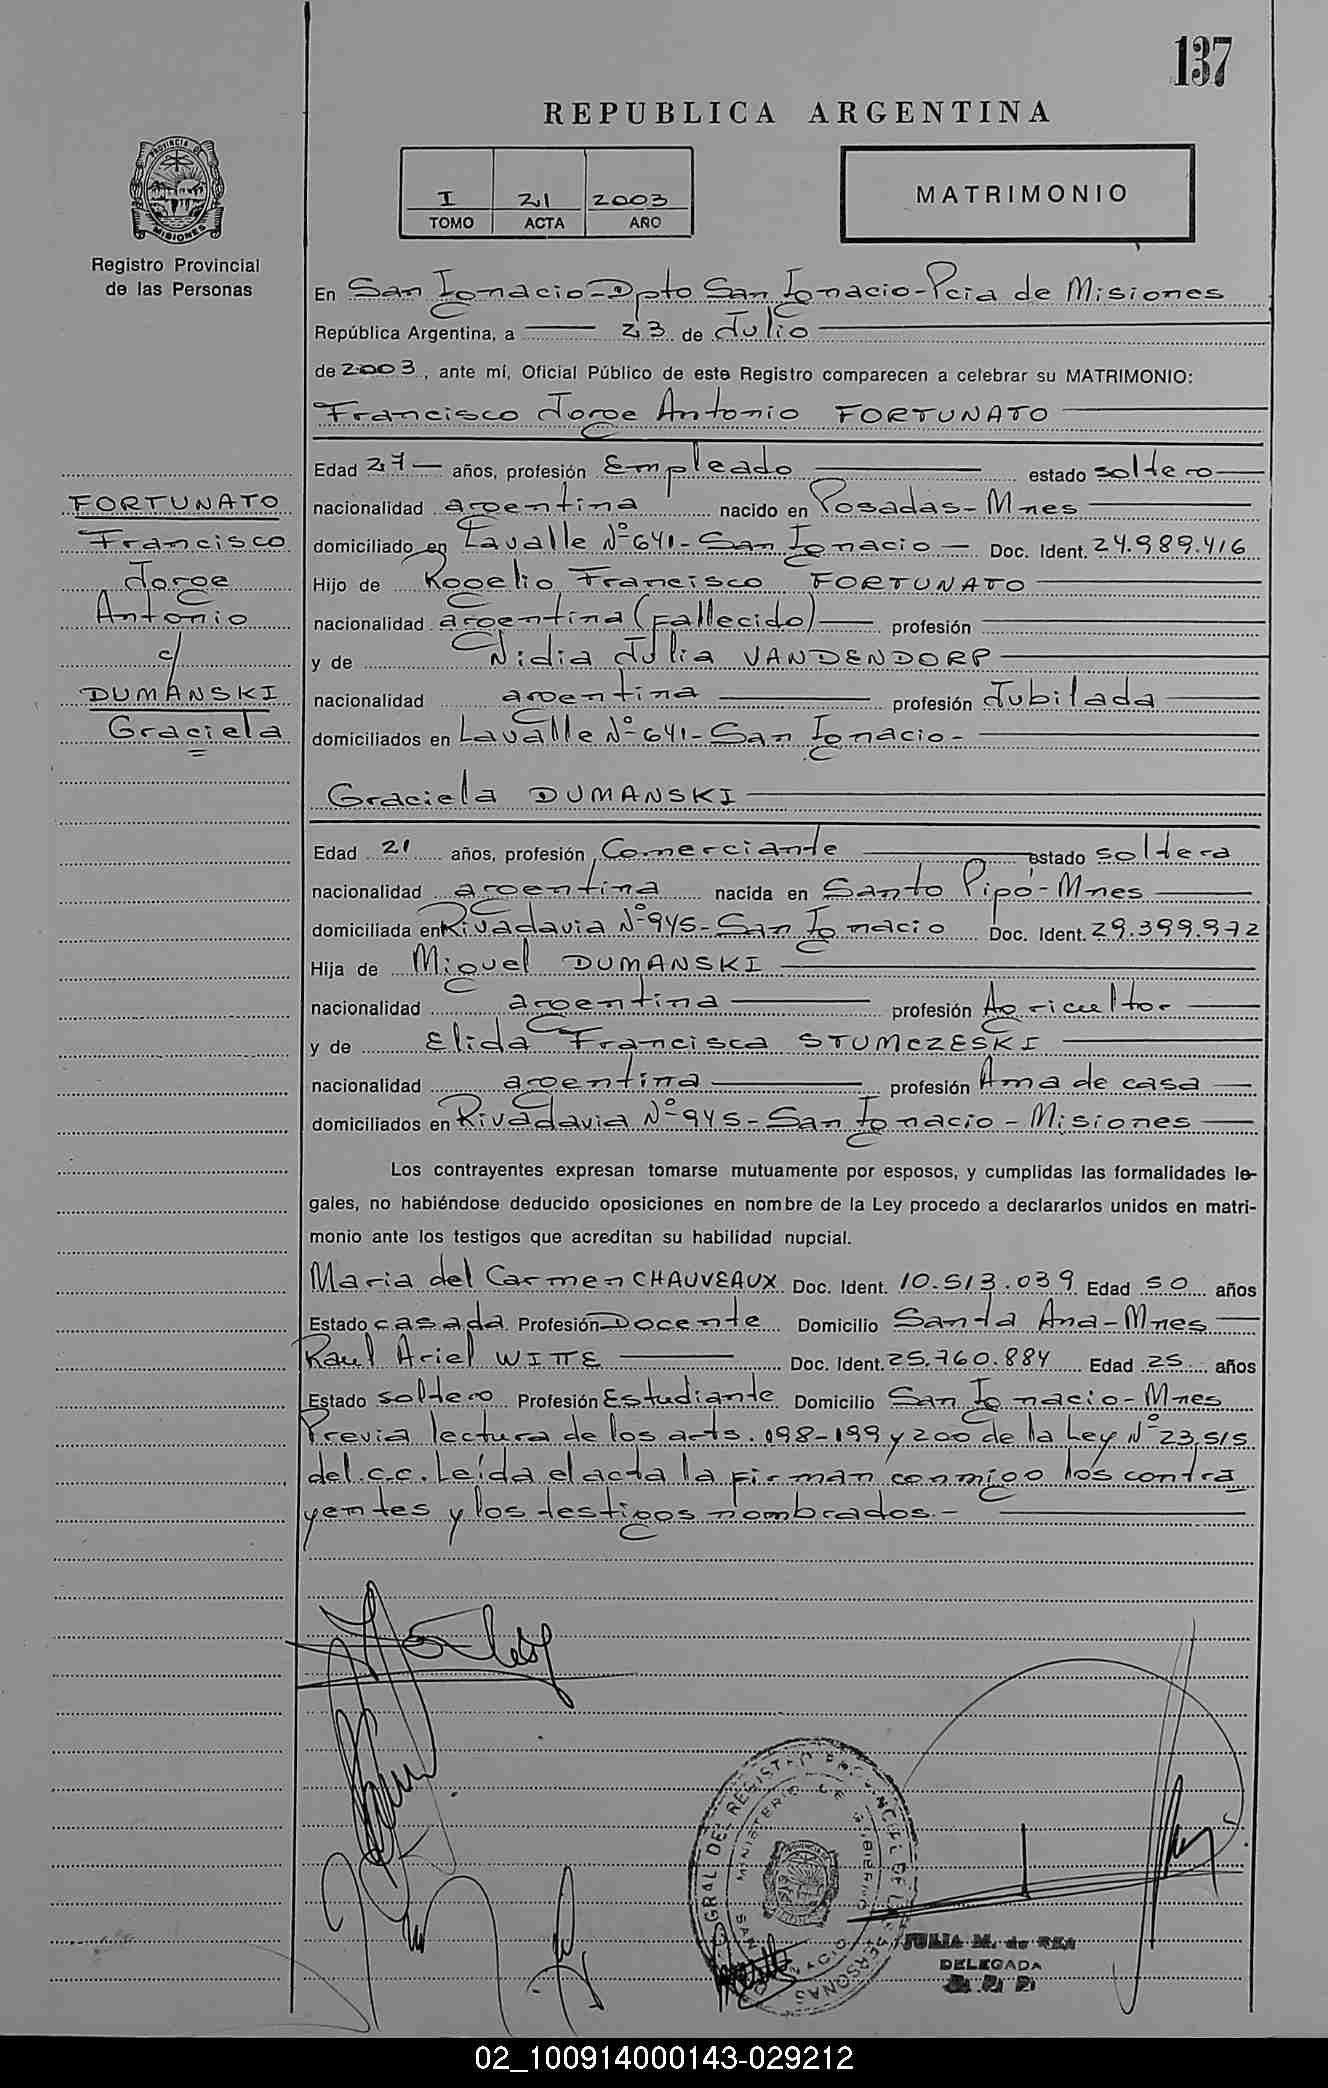 137
REPUBLICA ARGENTINA
I 21 2003
TOMO ACTA AÑO
MATRIMONIO
PROVINCIA DE MISIONES
Registro Provincial
de las Personas
En San Ignacio-Dpto San Ignacio-Pcia de Misiones
República Argentina, a 23 de Julio
de 2003, ante mí, Oficial Público de este Registro comparecen a celebrar su MATRIMONIO:
Francisco Jorge Antonio FORTUNATO
Edad 27 años, profesión Empleado estado soltero
nacionalidad argentina nacido en Posadas-Mnes
domiciliado en Lavalle Nº 641-San Ignacio- Doc. Ident. 24.989.416
Hijo de Rogelio Francisco FORTUNATO
nacionalidad argentina (fallecido) profesión
y de Nidia Julia VANDENDORP
nacionalidad argentina profesión Jubilada
domiciliados en Lavalle Nº 641-San Ignacio-
FORTUNATO
Francisco
Jorge
Antonio
c/
DUMANSKI
Graciela
Graciela DUMANSKI
Edad 21 años, profesión Comerciante estado soltera
nacionalidad argentina nacida en Santo Pipó-Mnes
domiciliada en Rivadavia Nº 945-San Ignacio Doc. Ident. 29.399.972
Hija de Miguel DUMANSKI
nacionalidad argentina profesión Agricultor
y de Elida Francisca STUMCZESKI
nacionalidad argentina profesión Ama de casa
domiciliados en Rivadavia Nº 945-San Ignacio-Misiones
Los contrayentes expresan tomarse mutuamente por esposos, y cumplidas las formalidades le-
gales, no habiéndose deducido oposiciones en nombre de la Ley procedo a declararlos unidos en matri-
monio ante los testigos que acreditan su habilidad nupcial.
Maria del Carmen CHAUVEAUX Doc. Ident. 10.513.039 Edad 50 años
Estado casada Profesión Docente Domicilio Santa Ana-Mnes
Raul Ariel WITTE Doc. Ident. 25.760.884 Edad 25 años
Estado soltero Profesión Estudiante Domicilio San Ignacio-Mnes
Previa lectura de los arts. 198-199 y 200 de la Ley Nº 23.515
del c.c. Leída el acta la firman conmigo los contra
yentes y los testigos nombrados.-
GRAL DEL REGISTRO PROVINCIAL DE LAS PERSONAS
MINISTERIO DE GOBIERNO
SAN IGNACIO
JULIA M. de REA
DELEGADA
02_100914000143-029212